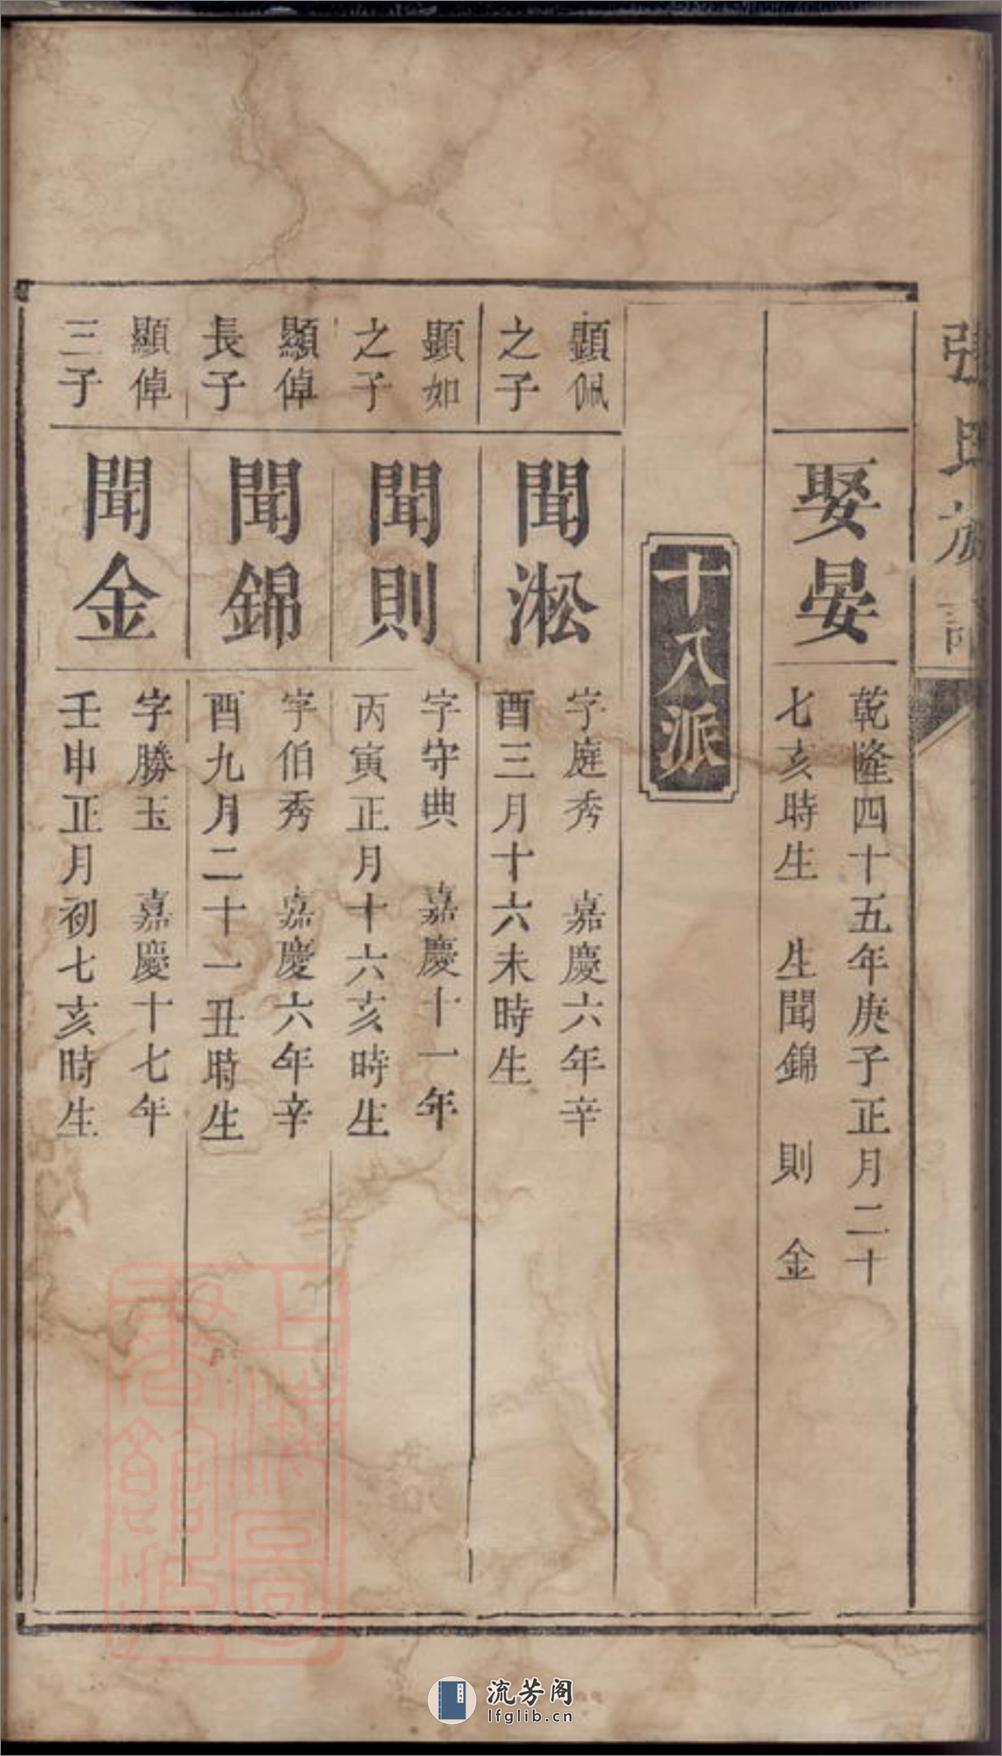 張氏族譜
娶晏
乾隆四十五年庚子正月二十
七亥時生 生聞錦 則 金
十八派
顯佩
之子
聞淞
字庭秀 嘉慶六年辛
酉三月十六未時生
顯如
之子
聞則
字守典 嘉慶十一年
丙寅正月十六亥時生
顯倬
長子
聞錦
字伯秀 嘉慶六年辛
酉九月二十一丑時生
顯倬
三子
聞金
字勝玉 嘉慶十七年
壬申正月初七亥時生
上海圖
書館藏
流芳阁
lfglib.cn